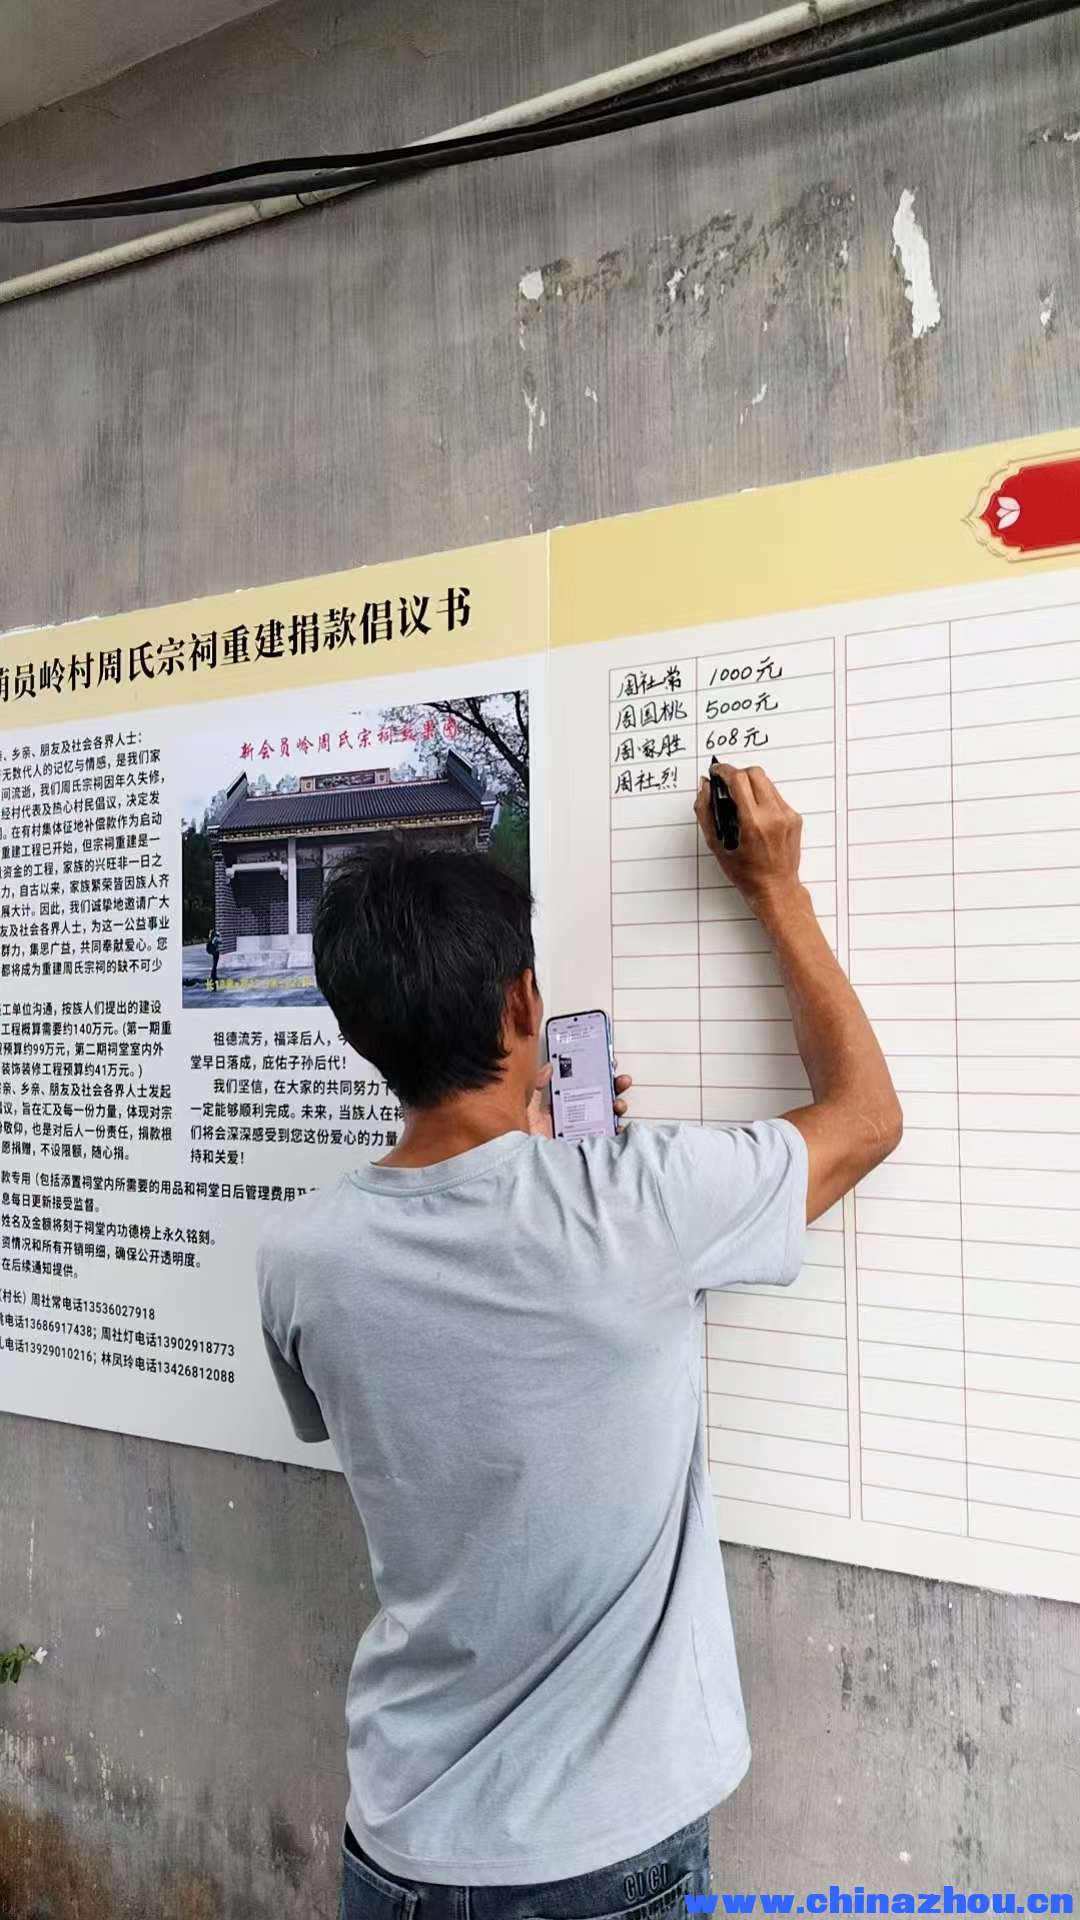 员岭村周氏宗祠重建捐款倡议书
、乡亲、朋友及社会各界人士：
无数代人的记忆与情感，是我们家
间流逝，我们周氏宗祠因年久失修，
经村代表及热心村民倡议，决定发
。在有村集体征地补偿款作为启动
重建工程已开始，但宗祠重建是一
资金的工程，家族的兴旺非一日之
力，自古以来，家族繁荣皆因族人齐
展大计。因此，我们诚挚地邀请广大
友及社会各界人士，为这一公益事业
群力，集思广益，共同奉献爱心。您
都将成为重建周氏宗祠的缺不可少
工单位沟通，按族人们提出的建设
工程概算需要约140万元。(第一期重
预算约99万元，第二期祠堂室内外
装饰装修工程预算约41万元。)
亲、乡亲、朋友及社会各界人士发起
议，旨在汇及每一份力量，体现对宗
敬仰，也是对后人一份责任，捐款根
愿捐赠，不设限额，随心捐。
新会员岭周氏宗祠效果图
祖德流芳，福泽后人，今
堂早日落成，庇佑子孙后代！
我们坚信，在大家的共同努力下
一定能够顺利完成。未来，当族人在祠
们将会深深感受到您这份爱心的力量
持和关爱！
款专用（包括添置祠堂内所需要的用品和祠堂日后管理费用及
息每日更新接受监督。
姓名及金额将刻于祠堂内功德榜上永久铭刻。
资情况和所有开销明细，确保公开透明度。
在后续通知提供。
（村长）周社常电话13536027918
电话13686917438；周社灯电话13902918773
电话13929010216；林凤玲电话13426812088
周社常 1000元
周国桃 5000元
周家胜 608元
周社烈
GUCCI
www.chinazhou.cn